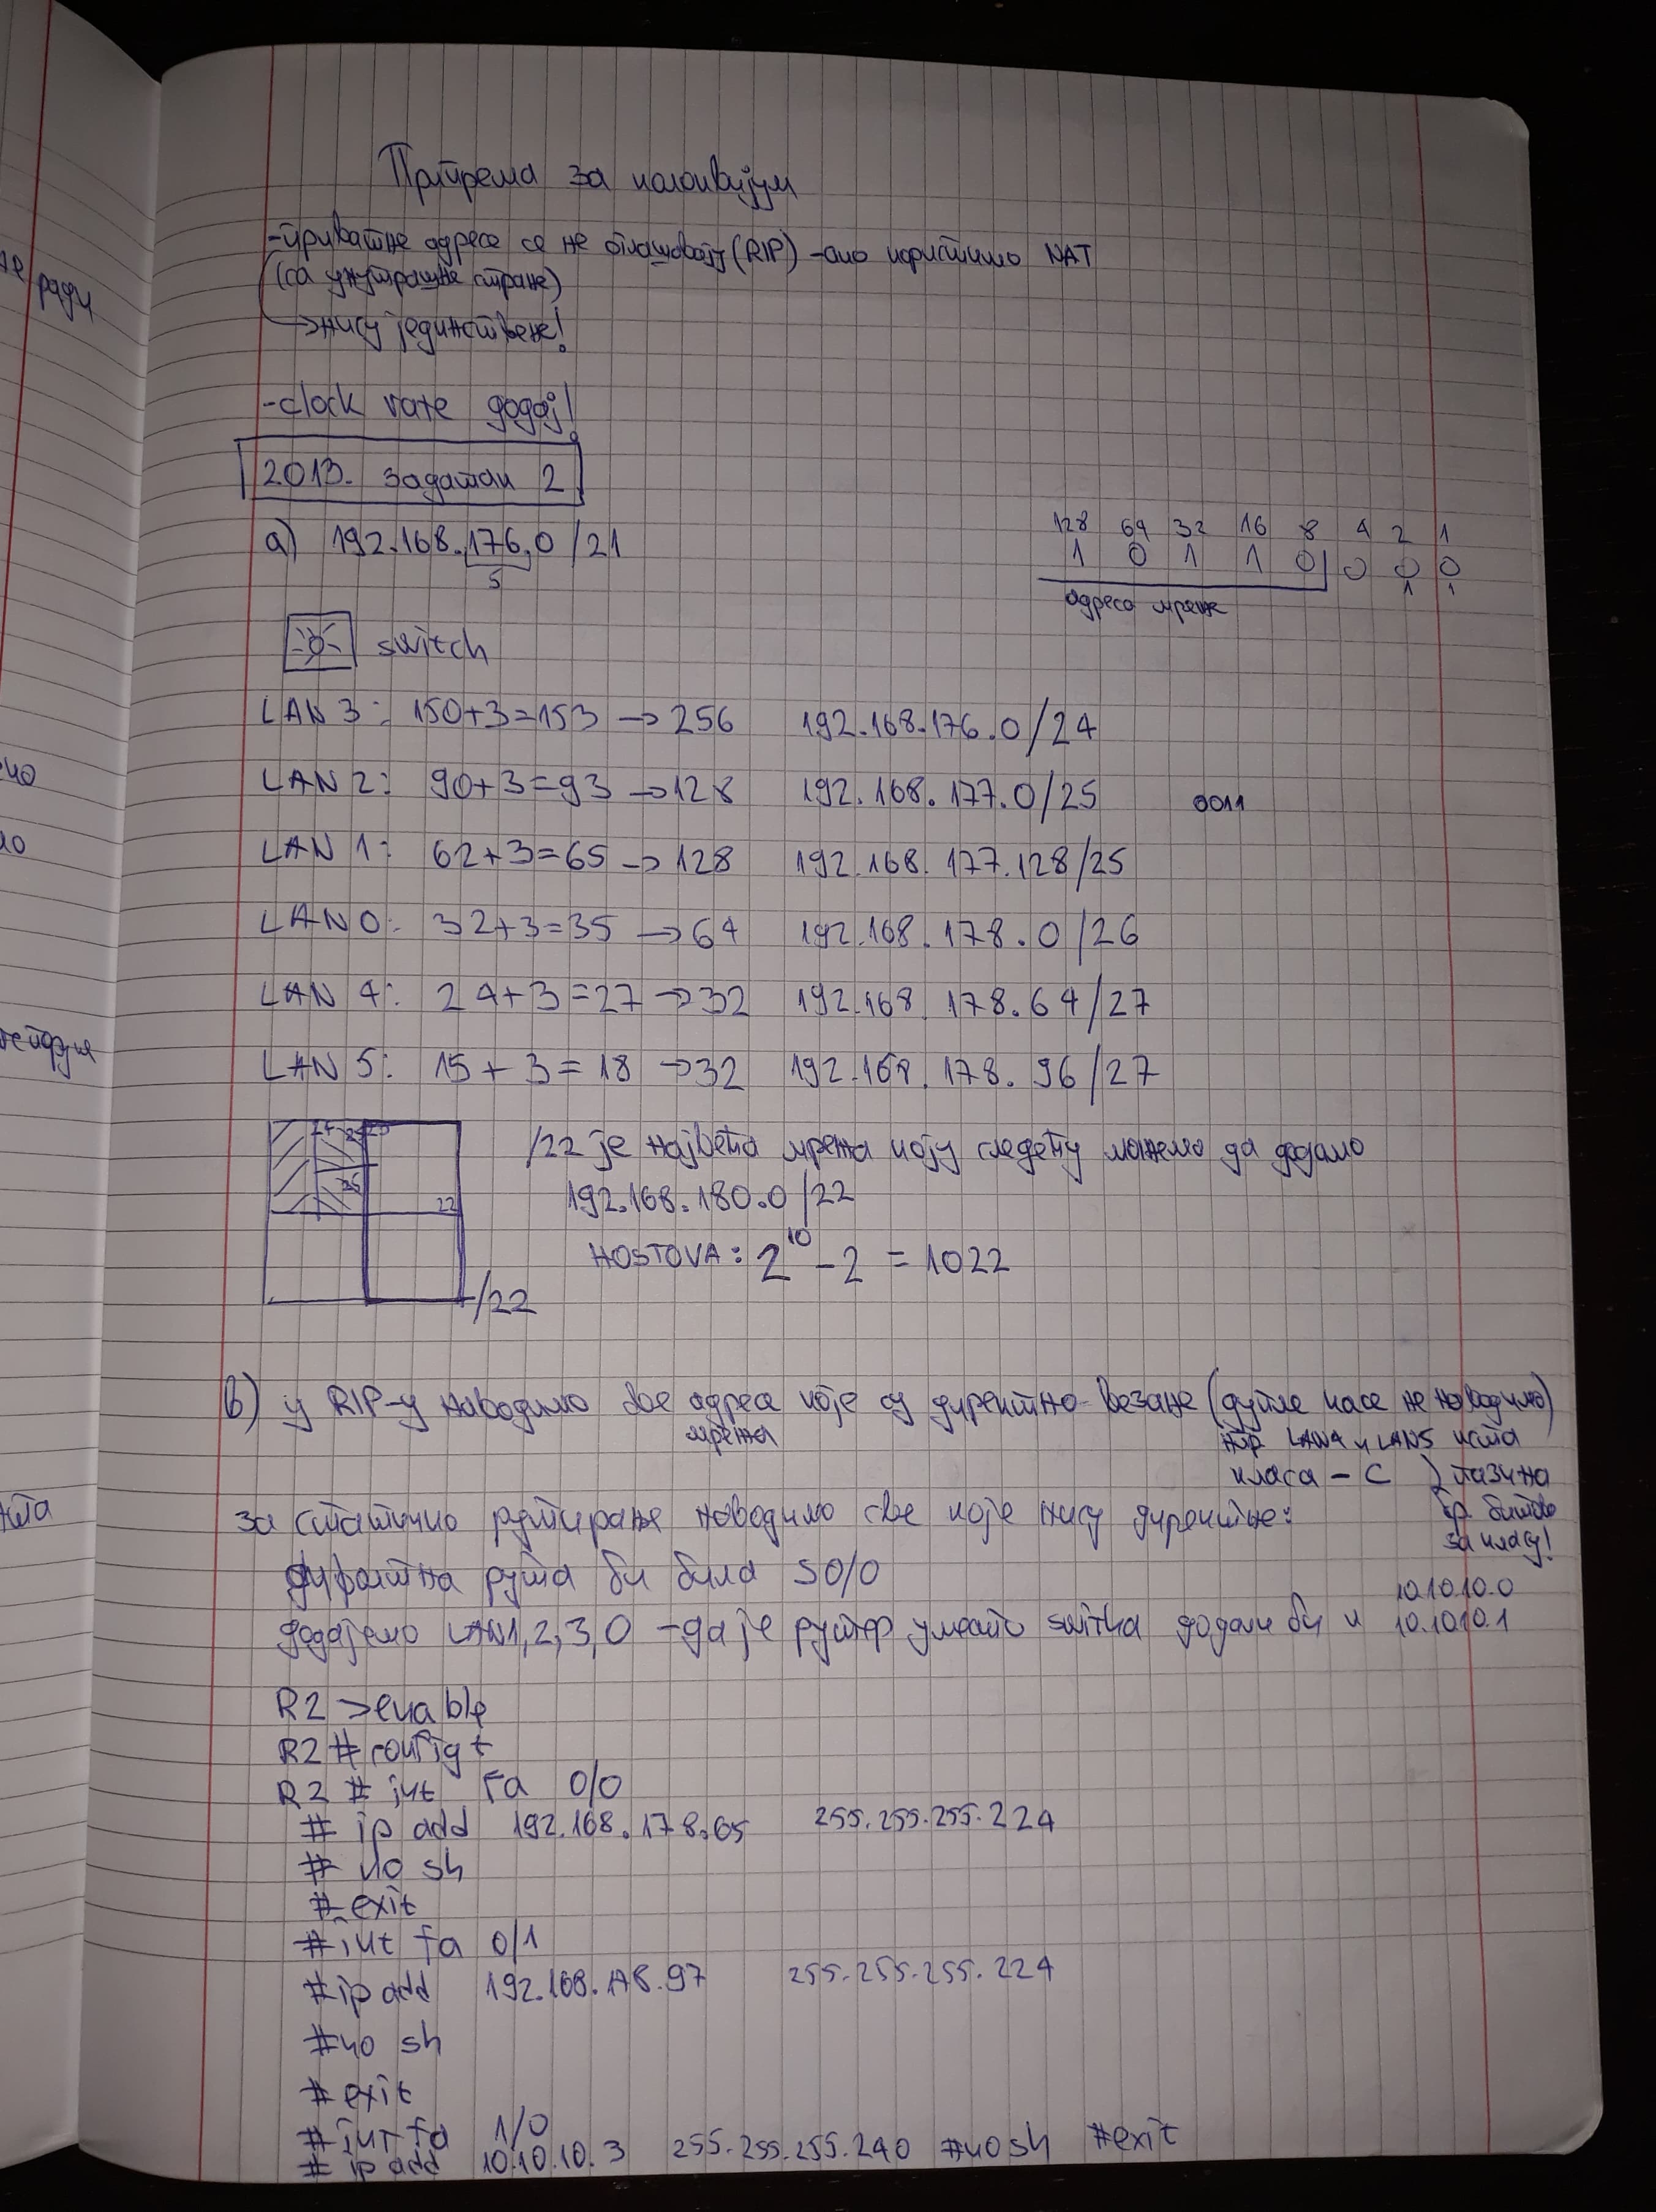 Припрема за колоквијум
-приватне адресе се не оглашавају (RIP) -ако користимо NAT
(са унутрашње стране)
→нису јединствене!
-clock rate додај!
2013. задатак 2
а) 192.168.176.0/21
5
128 64 32 16 8 4 2 1
1 0 1 1 0 0 0 0
1 1
адреса мреже
switch
LAN 3: 150+3=153 → 256 192.168.176.0/24
LAN 2: 90+3=93 → 128 192.168.177.0/25 0011
LAN 1: 62+3=65 → 128 192.168.177.128/25
LAN 0: 32+3=35 → 64 192.168.178.0/26
LAN 4: 24+3=27 → 32 192.168.178.64/27
LAN 5: 15+3=18 → 32 192.168.178.96/27
/22 је највећа мрежа коју следећу можемо да додамо
192.168.180.0/22
22
HOSTOVA: 2^10 - 2 = 1022
/22
в) у RIP-у наводимо све адресе које су директно везане (дупле класе не наводимо)
мрежа
нпр LAN4 и LAN5 иста
класа - C
пазим на
бр. битова
за класу!
за статичко рутирање наводимо све које нису директне:
рута би била S0/0
додајемо LAN1,2,3,0 -да је рутер уместо switcha додали би и 10.10.10.0
10.10.10.1
R2 >enable
R2 # config t
R2 # int fa 0/0
# ip add 192.168.178.65 255.255.255.224
# no sh
# exit
# int fa 0/1
# ip add 192.168.178.97 255.255.255.224
# no sh
# exit
# int fa 1/0
# ip add 10.10.10.3 255.255.255.240 #no sh #exit
ради